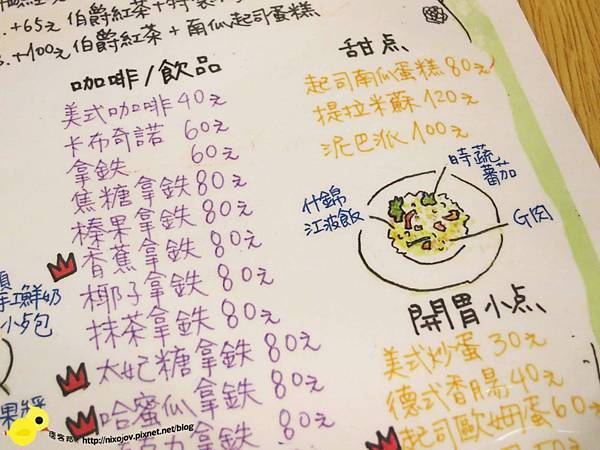 .+65元 伯爵紅茶+特製
.+100元 伯爵紅茶+南瓜起司蛋糕
咖啡/飲品
美式咖啡 40元
卡布奇諾 60元
拿鉄 60元
焦糖拿鉄 80元
榛果拿鉄 80元
香蕉拿鉄 80元
椰子拿鉄 80元
抹茶拿鉄 80元
太妃糖拿鉄 80元
哈蜜瓜拿鉄 80元
甜点
起司南瓜蛋糕 80元
提拉米蘇 120元
泥巴派 100元
時蔬
蕃茄
什錦
江波飯
G肉
開胃小点
美式炒蛋 30元
德式香腸 40元
起司歐姆蛋 60元
鮮奶
小包
果醬
痞客邦 http://nixojov.pixnet.net/blog